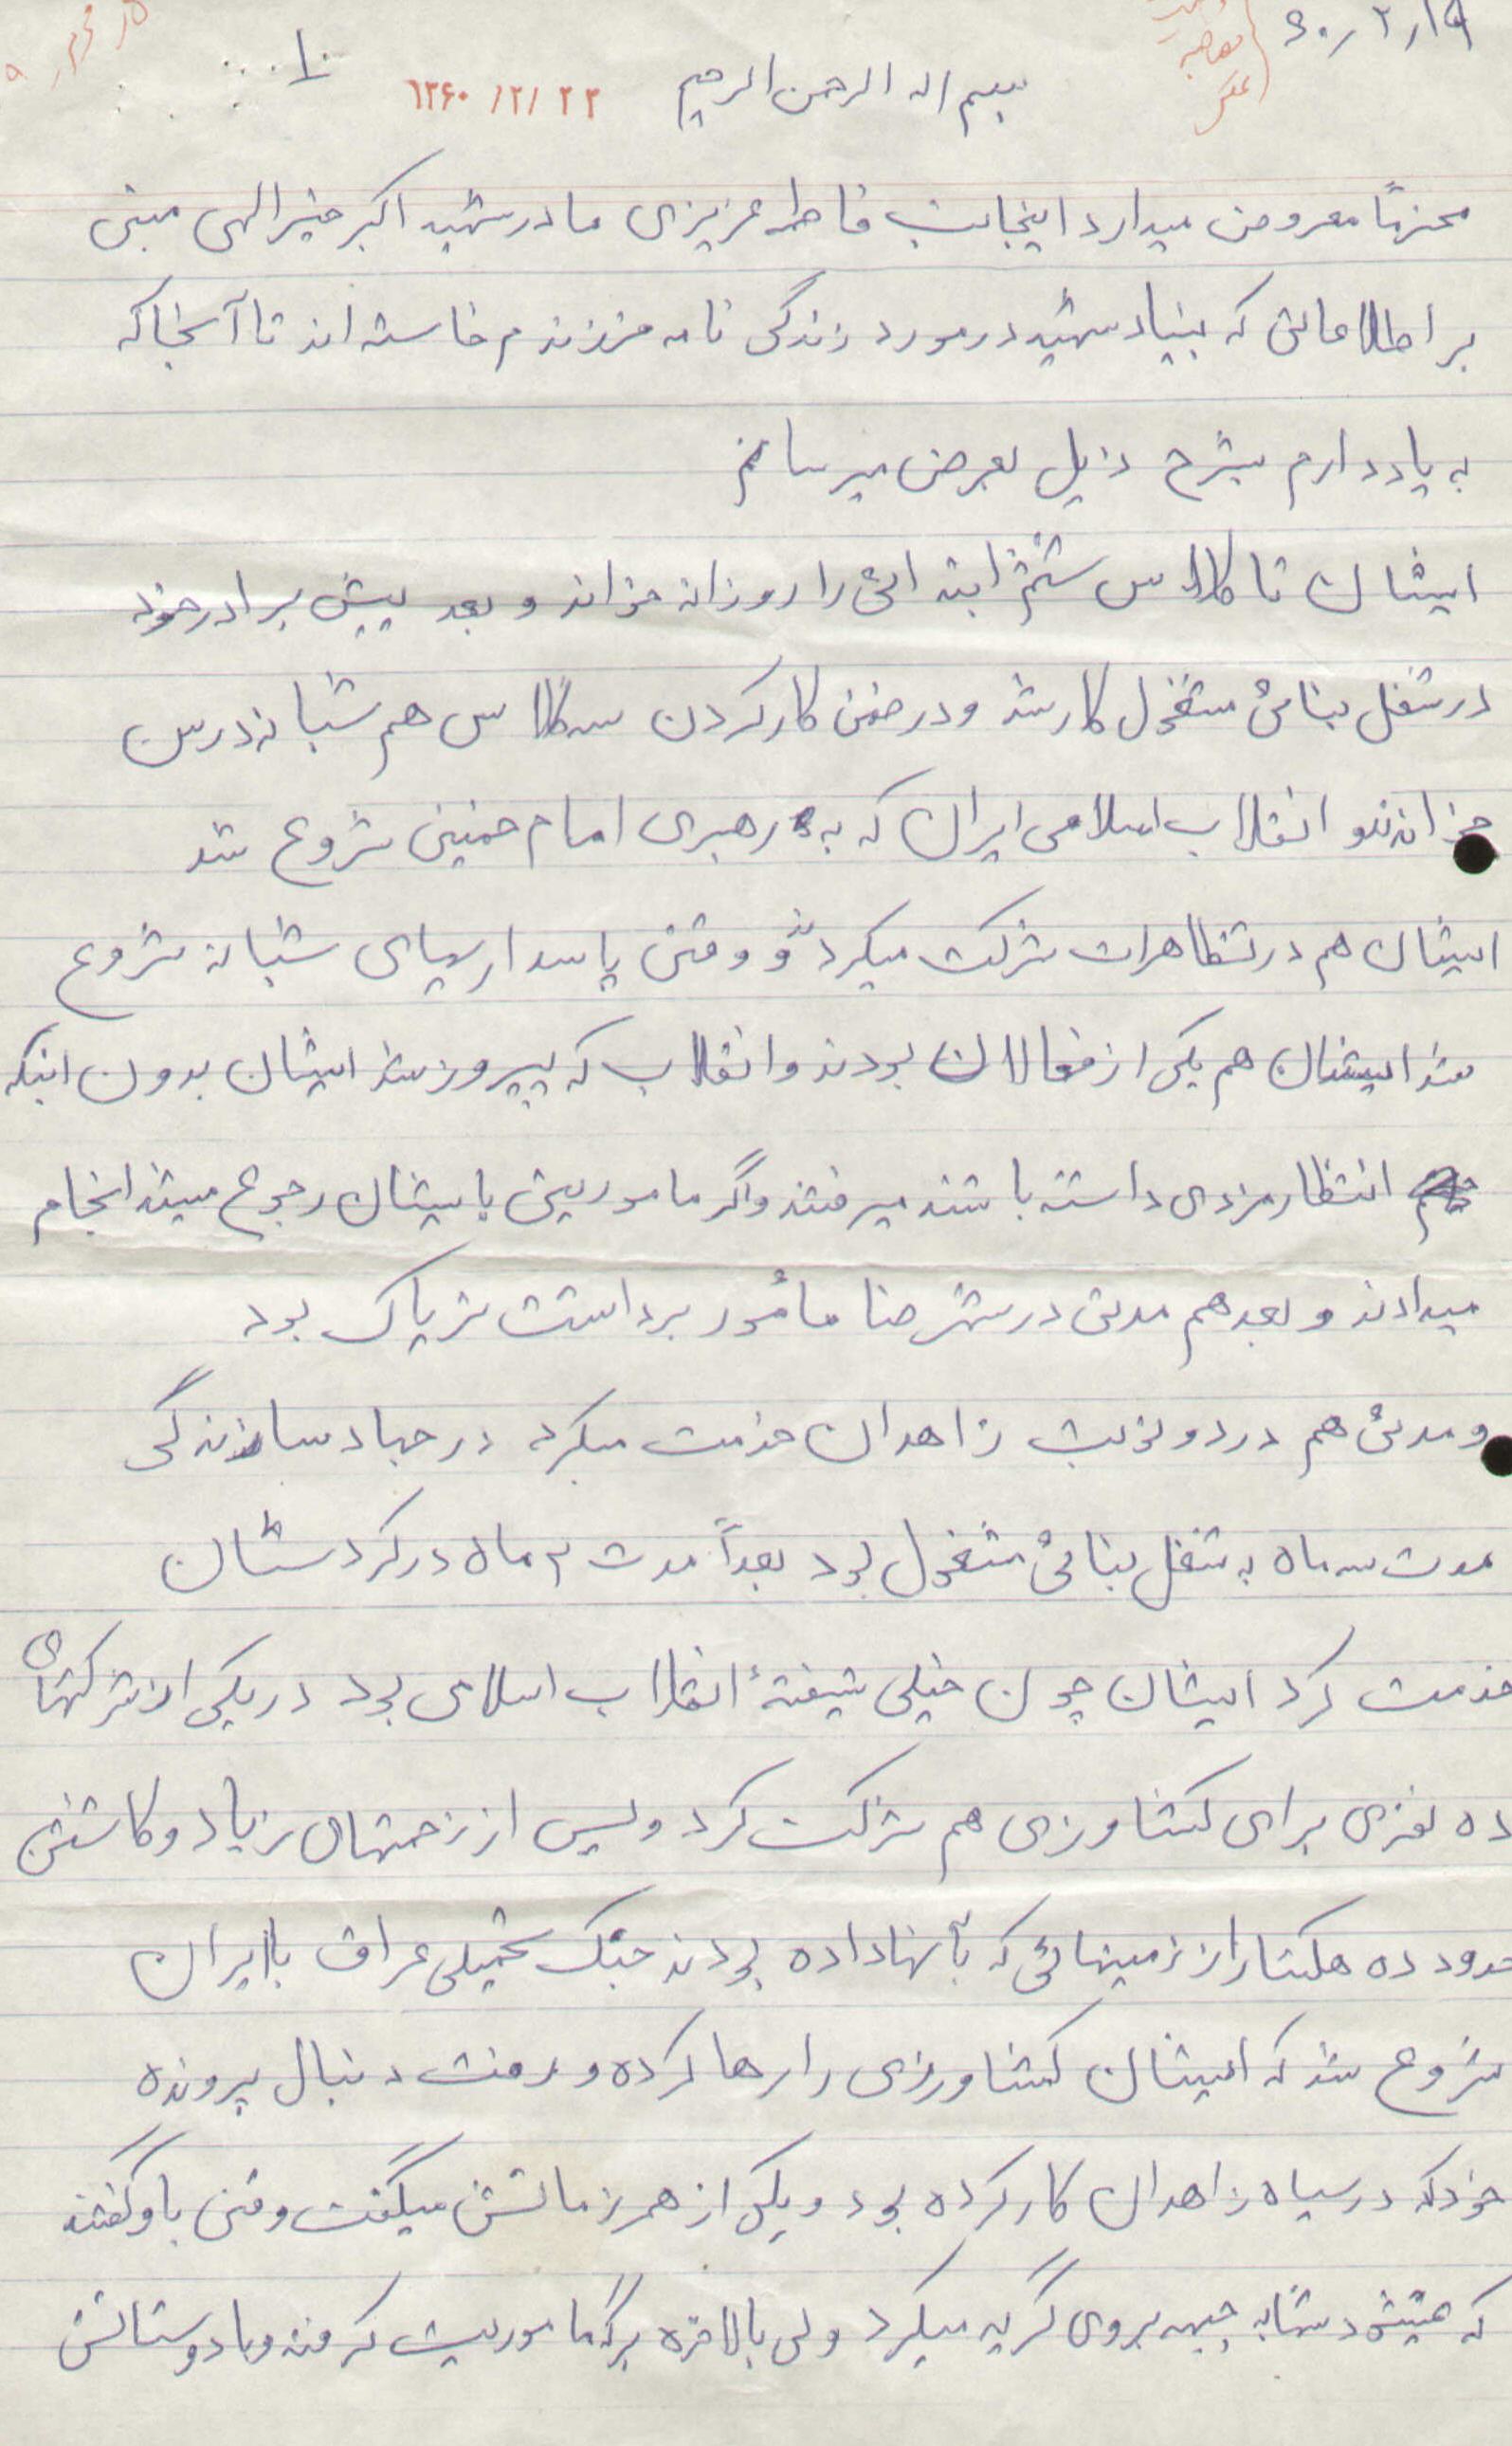 ۶۰/۲/۱۹
بسم اله الرحمن الرحیم ۱۳۶۰/۲/۲۲
محترماً معروض میدارد اینجانب فاطمه عزیزی مادر شهید اکبر خیرالهی مبنی
بر اطلاعاتی که بنیاد شهید در مورد زندگی نامه فرزندم خاسته اند تا آنجا که
به یاد دارم بشرح ذیل بعرض میرسانم
ایشان تا کلاس ششم ابتدائی را روزانه خواند و بعد پیش برادر خود
در شغل بنائی مشغول کار شد و در ضمن کار کردن سه کلاس هم شبانه درس
خواندند و انقلاب اسلامی ایران که به رهبری امام خمینی شروع شد
ایشان هم در تظاهرات شرکت میکرد و وقتی پاسداریهای شبانه شروع
شد ایشان هم یکی از فعالان بودند و انقلاب که پیروز شد ایشان بدون اینکه
انتظار مزدی داشته باشند میرفتند و اگر ماموریتی بایشان رجوع میشد انجام
میدادند و بعد هم مدتی در شهرضا مأمور برداشت تریاک بود
و مدتی هم در دو نوبت زاهدان خدمت میکرد در جهاد سازندگی
مدت سه ماه به شغل بنائی مشغول بود بعداً مدت ۲ ماه در کردستان
خدمت کرد ایشان چون خیلی شیفتۀ انقلاب اسلامی بود در یکی از شرکتهای
ده نفری برای کشاورزی هم شرکت کرد و پس از زحمتهای زیاد و کاشتن
حدود ده هکتار از زمینهائی که بآنها داده بودند جنگ تحمیلی عراق با ایران
شروع شد که ایشان کشاورزی را رها کرده و رفت دنبال پرونده
خود که در سپاه زاهدان کار کرده بود و یکی از همرزمانش میگفت وقتی باو گفتند
که جبهه نروی گریه میکرد ولی بالاخره برگه ماموریت گرفته و با دوستانش